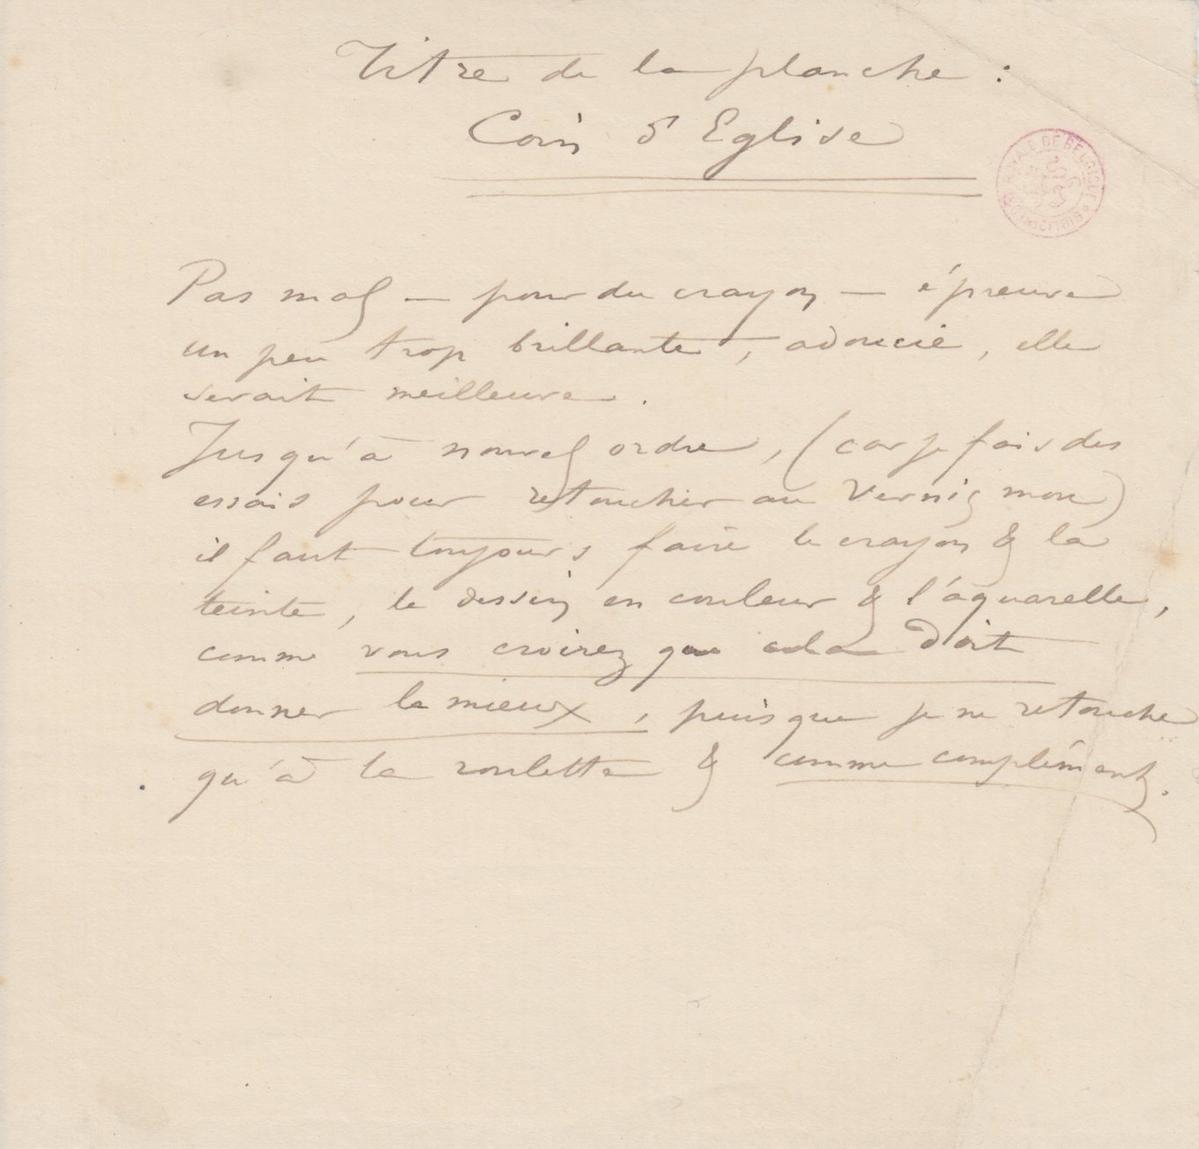 Titre de la planche :
Coin d'Eglise
Pas mal — pour du crayon — épreuve
un peu trop brillante, adoucie, elle
serait meilleure.
Jusqu'à nouvel ordre, (car je fais des
essais pour retoucher au Vernis mou)
il faut toujours faire le crayon & la
teinte, le dessin en couleur & l'aquarelle,
comme vous croirez que cela doit
donner le mieux, puisque je ne retouche
qu'à la roulette & comme complément.
ROYALE DE BELGIQUE